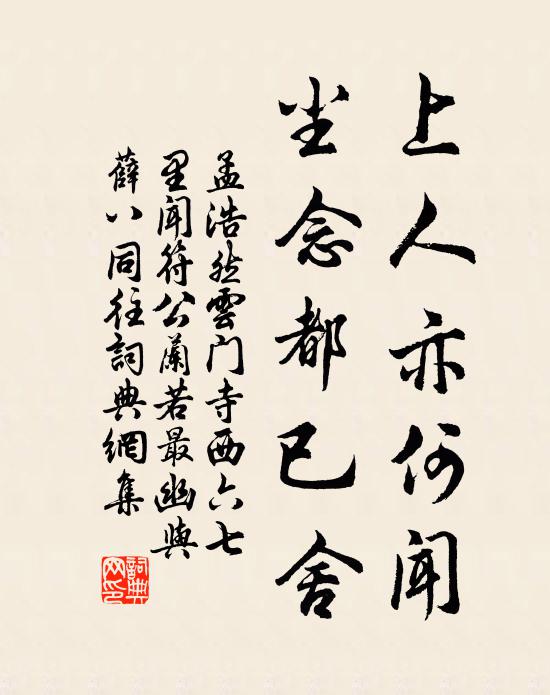 上人亦何闻
尘念都已舍
孟浩然雲门寺西六七
里闻符公蘭若最幽與
薛八同往詞典網集
詞典网印